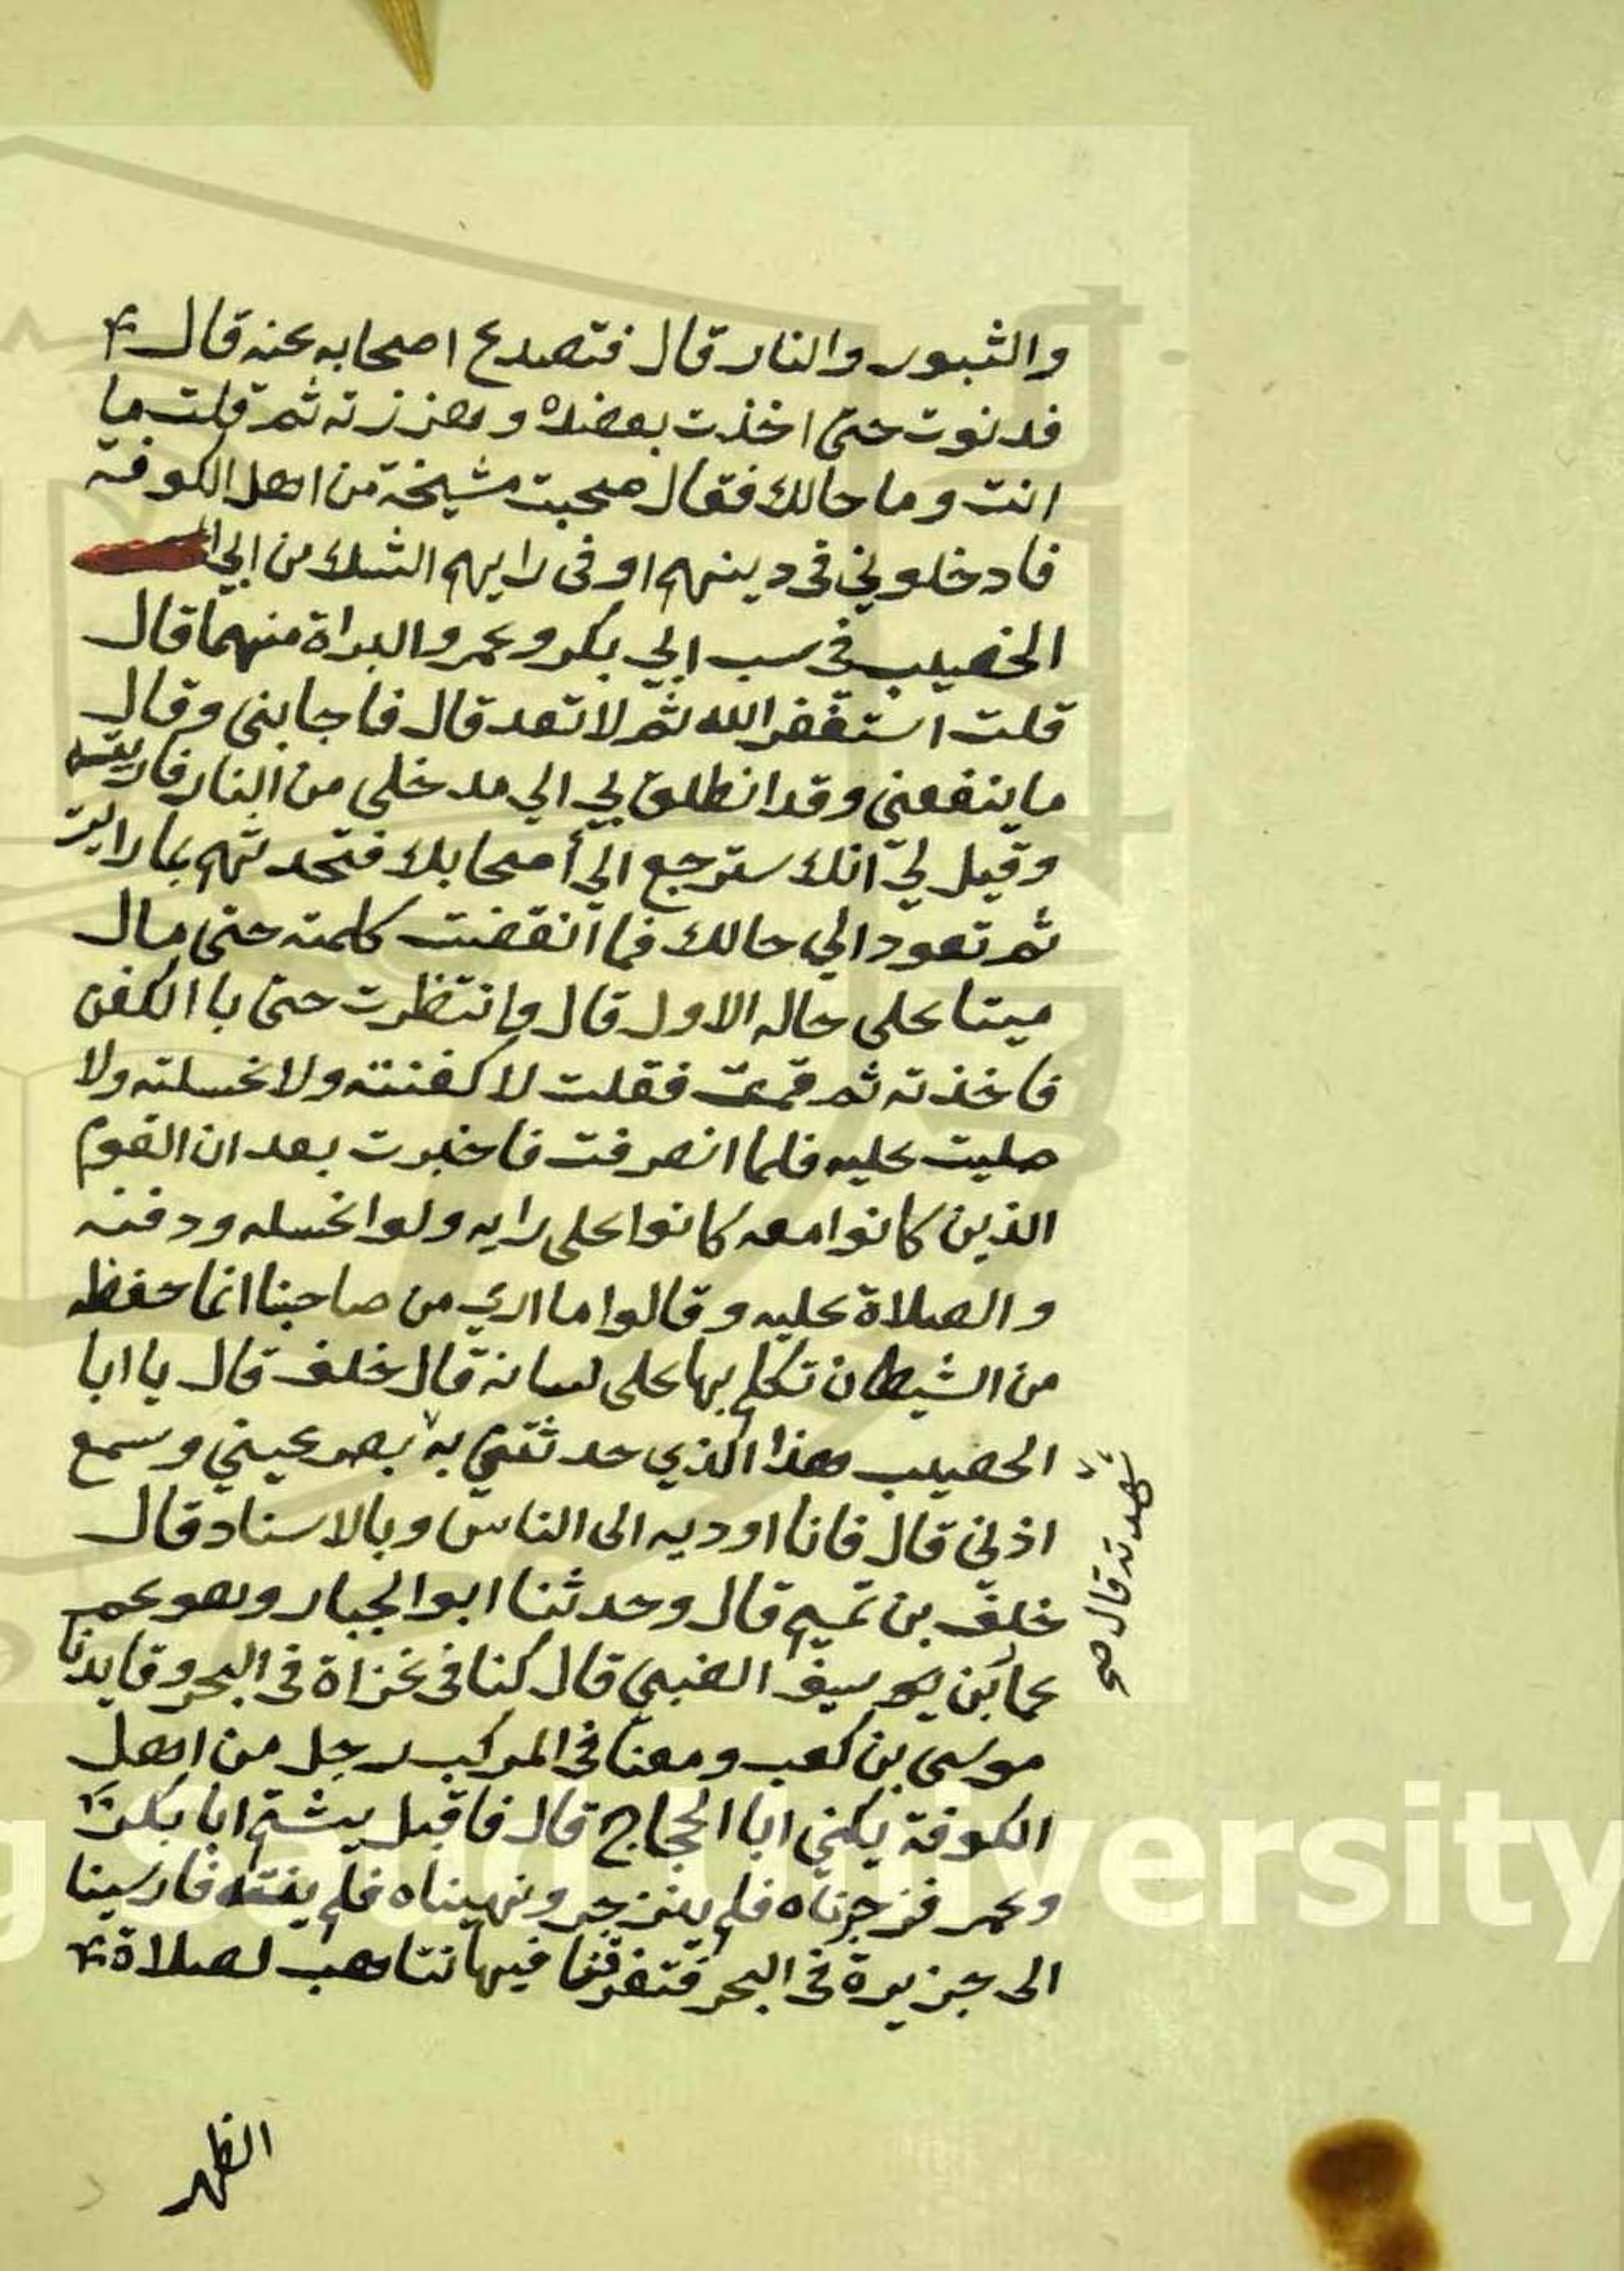 والثبور والنار قال فتصدع اصحابه عنه قال
فدنوت حتى اخذت بعضده وهززته ثم قلت ما
انت وما حالك فقال صحبت مشيخة من اهل الكوفة
فادخلوني في دينهم او في رايهم الشك من ابي
الخصيب في سب ابي بكر وعمر والبراة منهما قال
قلت استغفر الله ثم لا تعد قال فاجابني وقال
ما ينفعني وقد انطلق لي الي مدخلي من النار فاريته
وقيل لي انك سترجع الي أصحابك فتحدثهم بما رايت
ثم تعود الي حالك فما انقضت كلمته حتى مال
ميتا على حاله الاول قال وانتظرت حتى با الكفن
فاخذته ثم قمت فقلت لا كفنته ولا غسلته ولا
صليت عليه فلما انصرفت فاخبرت بعد ان القوم
الذين كانوا معه كانوا على رايه ولوا غسله ودفنه
والصلاة عليه وقالوا ما الذي من صاحبنا انما حفظه
من الشيطان تكلم بها على لسانه قال خلف قال يا ابا
الحصيب هذا الذي حدثتني به بصر عيني وسمع
اذني قال فانا اوديه الى الناس وبالاسناد قال
خلف بن تميم قال وحدثنا ابو الجبار وهو عم
عمار بن يوسيف الضبي قال كنا في غزاة في البحر وقايدنا
موسى بن كعب ومعنا في المركب رجل من اهل
الكوفة يكنى ابا الحجاج قال فاقبل يشتم ابا بكر
وعمر فزجرناه فلم ينزجر ونهيناه فلم ينته فارسينا
الى جزيرة في البحر فتفرقنا فيها نتاهب لصلاة
الظهر
شهدته قال صح